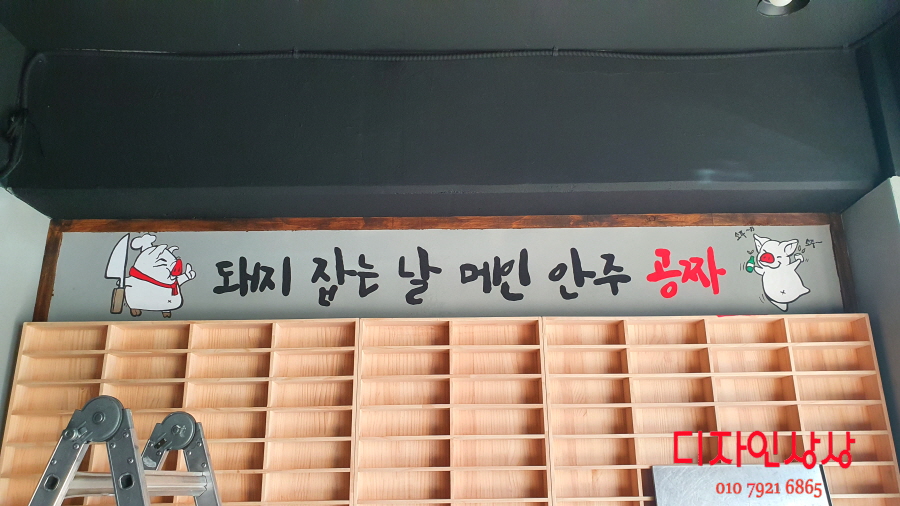 돼지 잡는 날 메인 안주 공짜
디자인상상
010 7921 6865